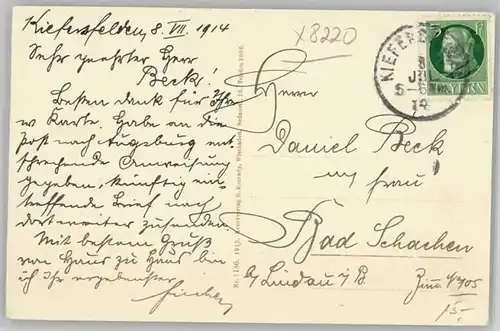 Kiefersfelden, 8. VII. 1914
Sehr geehrter Herr
Beck!
Besten dank für Ihre
w Karte. Habe an die
Post nach Augsburg ent
sprechende Anweisung
gegeben, künftig ein-
treffende Brief nach
dort weiter zusenden.
Mit bestem Gruß
von Haus zu Haus bin
ich Ihr ergebenster
Fischer
x8220
Herrn
Daniel Beck
u/ frau
Bad Schachen
b/ Lindau i/B.
KIEFERS
8
JUL
5-6
14
5
BAYERN
15.-